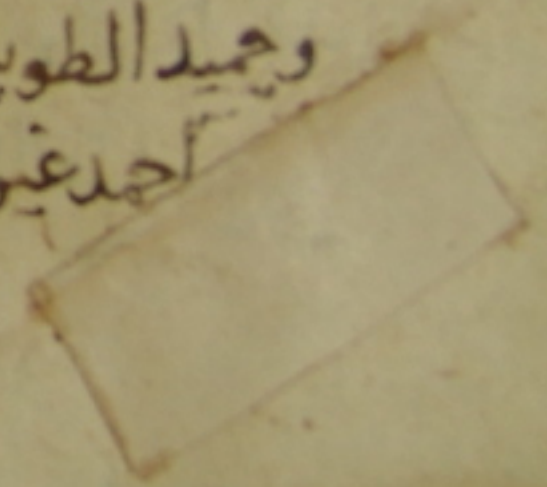 وحميد الطويـ
احمد غيـ